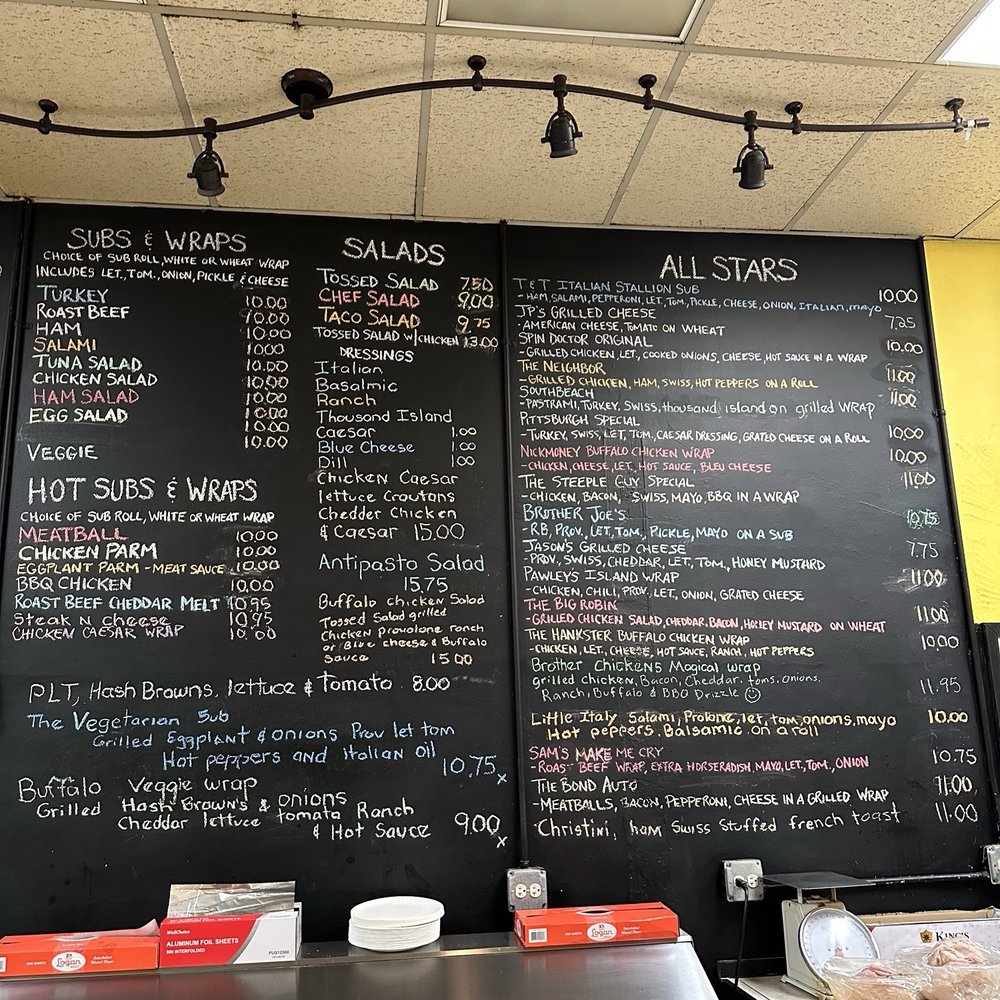 SUBS & WRAPS
CHOICE OF SUB ROLL, WHITE OR WHEAT WRAP
INCLUDES LET., TOM., ONION, PICKLE & CHEESE
TURKEY 10.00
ROAST BEEF 10.00
HAM 10.00
SALAMI 10.00
TUNA SALAD 10.00
CHICKEN SALAD 10.00
HAM SALAD 10.00
EGG SALAD 10.00
VEGGIE 10.00
HOT SUBS & WRAPS
CHOICE OF SUB ROLL, WHITE OR WHEAT WRAP
MEATBALL 10.00
CHICKEN PARM 10.00
EGGPLANT PARM - MEAT SAUCE 10.00
BBQ CHICKEN 10.00
ROAST BEEF CHEDDAR MELT 10.95
STEAK N CHEESE 10.95
CHICKEN CAESAR WRAP 10.00
SALADS
TOSSED SALAD 7.50
CHEF SALAD 9.00
TACO SALAD 9.75
TOSSED SALAD W/CHICKEN 13.00
DRESSINGS
Italian
Basalmic
Ranch
Thousand Island
Caesar 1.00
Blue Cheese 1.00
Dill 1.00
Chicken Caesar
lettuce Croutans
Chedder Chicken
& Caesar 15.00
Antipasto Salad
15.75
Buffalo chicken Salad
Tossed Salad grilled
Chicken provolone ranch
or Blue cheese & Buffalo
Sauce 15.00
PLT, Hash Browns, lettuce & Tomato 8.00
The Vegetarian Sub
Grilled Eggplant & onions Prov let tom
Hot peppers and italian oil
10.75 x
Buffalo Veggie wrap
Grilled Hash Brown's & onions
Cheddar lettuce tomato Ranch
& Hot Sauce 9.00
x
ALL STARS
T & T ITALIAN STALLION SUB 10.00
- HAM, SALAMI, PEPPERONI, LET, TOM, PICKLE, CHEESE, ONION, ITALIAN, mayo
JP'S GRILLED CHEESE 7.25
- AMERICAN CHEESE, TOMATO ON WHEAT
SPIN DOCTOR ORIGINAL 10.00
- GRILLED CHICKEN, LET., COOKED ONIONS, CHEESE, HOT SAUCE IN A WRAP
THE NEIGHBOR 11.00
- GRILLED CHICKEN, HAM, SWISS, HOT PEPPERS ON A ROLL
SOUTHBEACH 11.00
- PASTRAMI, TURKEY, SWISS, thousand island on grilled WRAP
PITTSBURGH SPECIAL 10.00
- TURKEY, SWISS, LET, TOM, CAESAR DRESSING, GRATED CHEESE ON A ROLL
NICKMONEY BUFFALO CHICKEN WRAP 10.00
- CHICKEN, CHEESE, LET, HOT SAUCE, BLEU CHEESE
THE STEEPLE GUY SPECIAL 11.00
- CHICKEN, BACON, SWISS, MAYO, BBQ IN A WRAP
BROTHER JOE'S 10.75
- RB, PROV, LET, TOM, PICKLE, MAYO ON A SUB
JASON'S GRILLED CHEESE 7.75
- PROV, SWISS, CHEDDAR, LET, TOM, HONEY MUSTARD
PAWLEY'S ISLAND WRAP 11.00
- CHICKEN, CHILI, PROV, LET, ONION, GRATED CHEESE
THE BIG ROBIN 11.00
- GRILLED CHICKEN SALAD, CHEDDAR, BACON, HONEY MUSTARD ON WHEAT
THE HANKSTER BUFFALO CHICKEN WRAP 10.00
- CHICKEN, LET, CHEESE, HOT SAUCE, RANCH, HOT PEPPERS
Brother Chickens Magical wrap
grilled chicken, Bacon, Cheddar, toms, onions,
Ranch, Buffalo & BBQ Drizzle ☺ 11.95
Little Italy Salami, Prolone, let, tom, onions, mayo 10.00
Hot peppers, Balsamic on a roll
SAM'S MAKE ME CRY 10.75
- ROAST BEEF WRAP, EXTRA HORSERADISH, MAYO, LET, TOM, ONION
THE BOND AUTO 11.00
- MEATBALLS, BACON, PEPPERONI, CHEESE IN A GRILLED WRAP
Christini, ham Swiss Stuffed french toast 11.00
Logan
WellChoice
ALUMINUM FOIL SHEETS
500 INTERFOLDED
PUS12500
Logan
KING'S